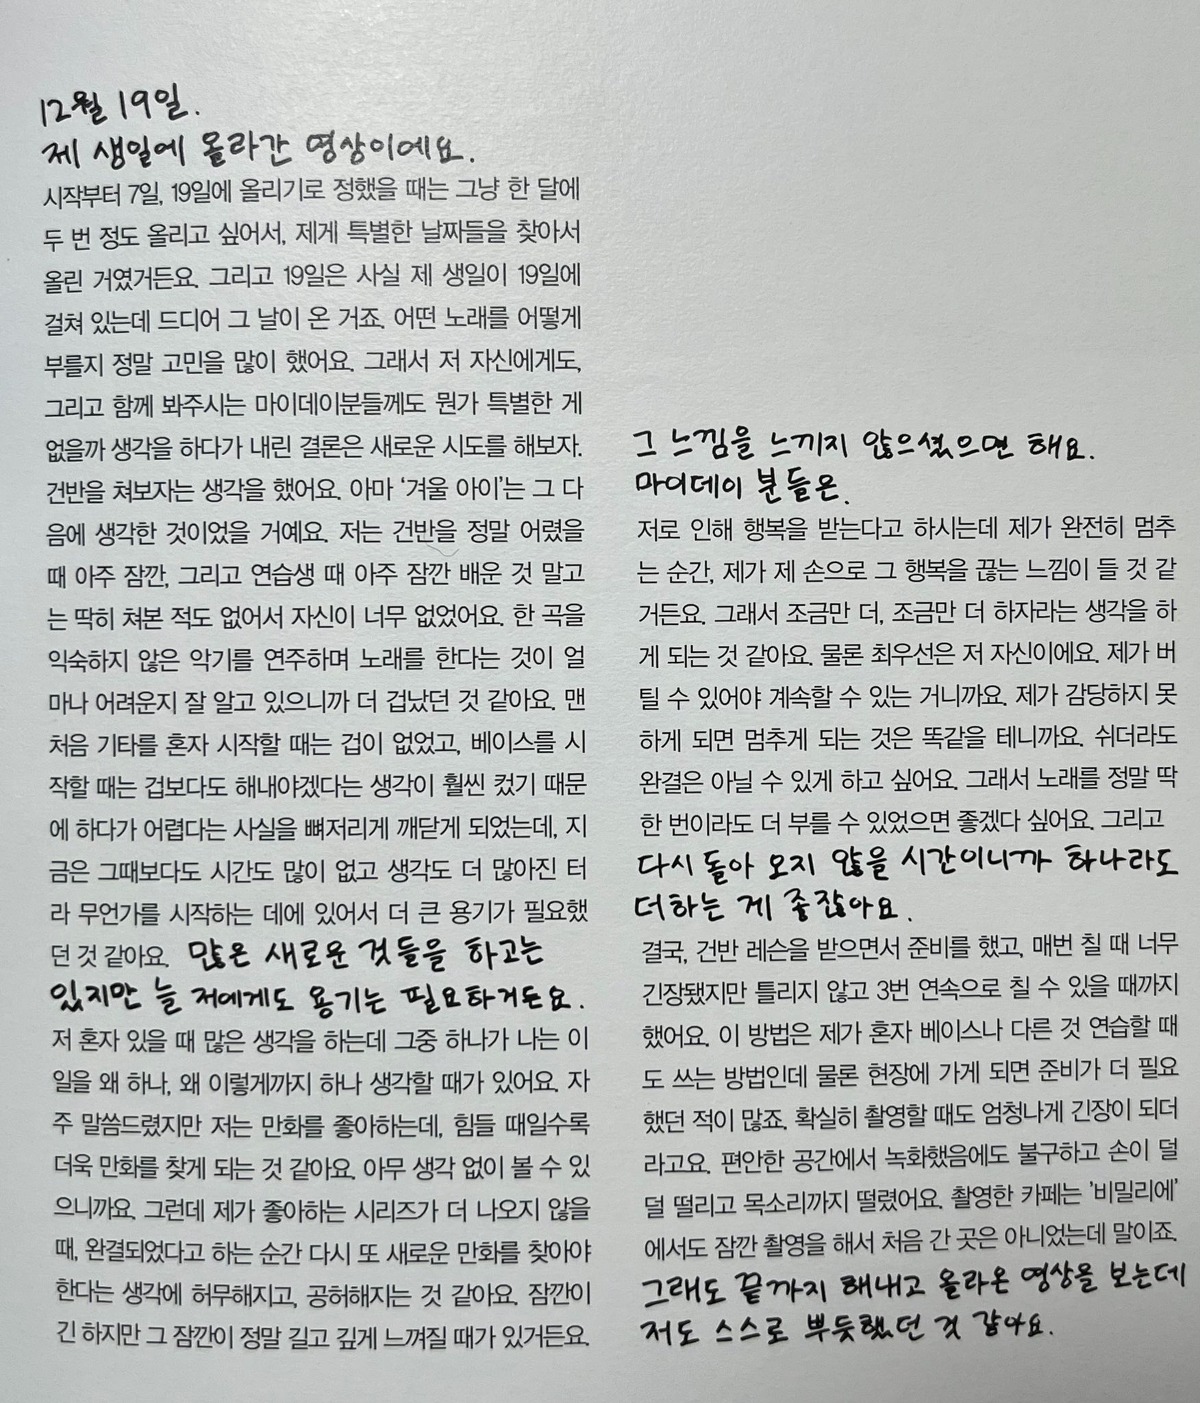 12월 19일.
제 생일에 올라간 영상이에요.
시작부터 7일, 19일에 올리기로 정했을 때는 그냥 한 달에
두 번 정도 올리고 싶어서, 제게 특별한 날짜들을 찾아서
올린 거였거든요. 그리고 19일은 사실 제 생일이 19일에
걸쳐 있는데 드디어 그 날이 온 거죠. 어떤 노래를 어떻게
부를지 정말 고민을 많이 했어요. 그래서 저 자신에게도,
그리고 함께 봐주시는 마이데이분들께도 뭔가 특별한 게
없을까 생각을 하다가 내린 결론은 새로운 시도를 해보자.
건반을 쳐보자는 생각을 했어요. 아마 ‘겨울 아이’는 그 다
음에 생각한 것이었을 거예요. 저는 건반을 정말 어렸을
때 아주 잠깐, 그리고 연습생 때 아주 잠깐 배운 것 말고
는 딱히 쳐본 적도 없어서 자신이 너무 없었어요. 한 곡을
익숙하지 않은 악기를 연주하며 노래를 한다는 것이 얼
마나 어려운지 잘 알고 있으니까 더 겁났던 것 같아요. 맨
처음 기타를 혼자 시작할 때는 겁이 없었고, 베이스를 시
작할 때는 겁보다도 해내야겠다는 생각이 훨씬 컸기 때문
에 하다가 어렵다는 사실을 뼈저리게 깨닫게 되었는데, 지
금은 그때보다도 시간도 많이 없고 생각도 더 많아진 터
라 무언가를 시작하는 데에 있어서 더 큰 용기가 필요했
던 것 같아요. 많은 새로운 것들을 하고는
있지만 늘 저에게도 용기는 필요하거든요.
저 혼자 있을 때 많은 생각을 하는데 그중 하나가 나는 이
일을 왜 하나, 왜 이렇게까지 하나 생각할 때가 있어요. 자
주 말씀드렸지만 저는 만화를 좋아하는데, 힘들 때일수록
더욱 만화를 찾게 되는 것 같아요. 아무 생각 없이 볼 수 있
으니까요. 그런데 제가 좋아하는 시리즈가 더 나오지 않을
때, 완결되었다고 하는 순간 다시 또 새로운 만화를 찾아야
한다는 생각에 허무해지고, 공허해지는 것 같아요. 잠깐이
긴 하지만 그 잠깐이 정말 길고 깊게 느껴질 때가 있거든요.
그 느낌을 느끼지 않으셨으면 해요.
마이데이 분들은.
저로 인해 행복을 받는다고 하시는데 제가 완전히 멈추
는 순간, 제가 제 손으로 그 행복을 끊는 느낌이 들 것 같
거든요. 그래서 조금만 더, 조금만 더 하자라는 생각을 하
게 되는 것 같아요. 물론 최우선은 저 자신이에요. 제가 버
틸 수 있어야 계속할 수 있는 거니까요. 제가 감당하지 못
하게 되면 멈추게 되는 것은 똑같을 테니까요. 쉬더라도
완결은 아닐 수 있게 하고 싶어요. 그래서 노래를 정말 딱
한 번이라도 더 부를 수 있었으면 좋겠다 싶어요. 그리고
다시 돌아 오지 않을 시간이니까 하나라도
더하는 게 좋잖아요.
결국, 건반 레슨을 받으면서 준비를 했고, 매번 칠 때 너무
긴장됐지만 틀리지 않고 3번 연속으로 칠 수 있을 때까지
했어요. 이 방법은 제가 혼자 베이스나 다른 것 연습할 때
도 쓰는 방법인데 물론 현장에 가게 되면 준비가 더 필요
했던 적이 많죠. 확실히 촬영할 때도 엄청나게 긴장이 되더
라고요. 편안한 공간에서 녹화했음에도 불구하고 손이 덜
덜 떨리고 목소리까지 떨렸어요. 촬영한 카페는 '비밀리에'
에서도 잠깐 촬영을 해서 처음 간 곳은 아니었는데 말이죠.
그래도 끝까지 해내고 올라온 영상을 보는데
저도 스스로 뿌듯했던 것 같아요.